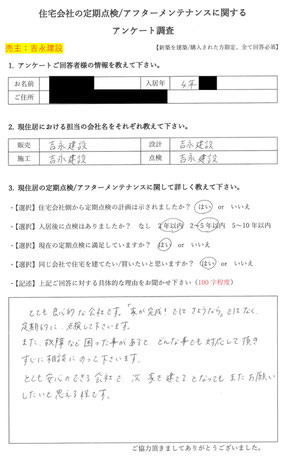 住宅会社の定期点検/アフターメンテナンスに関する
アンケート調査
売主：吉永建設
【新築を建築/購入された方限定、全て回答必須】
1. アンケートご回答者様の情報を教えて下さい。
お名前 入居年 4年
ご住所
2. 現住居における担当の会社名をそれぞれ教えて下さい。
販売 吉永建設 設計 吉永建設
施工 吉永建設 点検 吉永建設
3. 現住居の定期点検/アフターメンテナンスに関して詳しく教えて下さい。
・【選択】住宅会社側から定期点検の計画は示されましたか？ はい or いいえ
・【選択】入居後に点検はありましたか？ なし 2年以内 2～5年以内 5～10年以内
・【選択】現在の定期点検に満足していますか？ はい or いいえ
・【選択】同じ会社で住宅を建てたい/買いたいと思いますか？ はい or いいえ
・【記述】上記ご回答に対する具体的な理由をお聞かせ下さい（100字程度）
とても良心的な会社です。「家が完成！ではさようなら」ではなく、
定期的に点検して下さいます。
また、故障など困った事があると、どんな事でも対応して頂き
すぐに相談にのって下さいます。
とても安心のできる会社で、次、家を建てるとなってもまたお願い
したいと思える程です。
ご協力頂きましてありがとうございました。